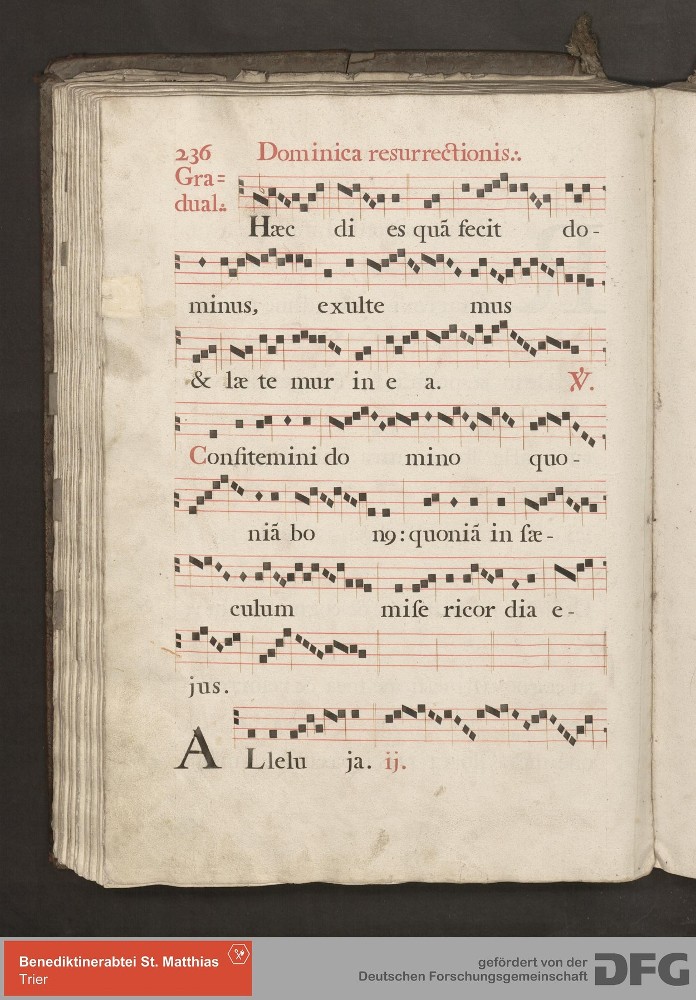 236 Dominica resurrectionis.·.
Gra=
dual.·.
Hæc di es quã fecit do-
minus, exulte mus
& læ te mur in e a. ℣.
Conſitemini do mino quo-
niã bo n9: quoniã in ſæ-
culum miſe ricor dia e-
jus.
ALlelu ja. ij.
Benediktinerabtei St. Matthias
Trier
gefördert von der
Deutschen Forschungsgemeinschaft
DFG